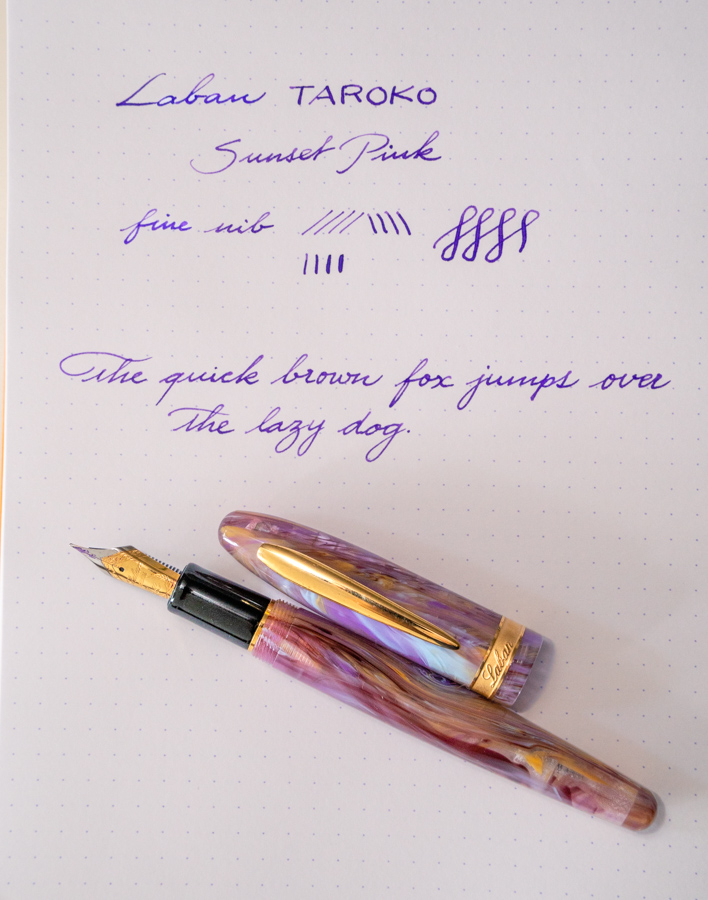 Laban TAROKO
Sunset Pink
fine nib
The quick brown fox jumps over
the lazy dog.
Laban